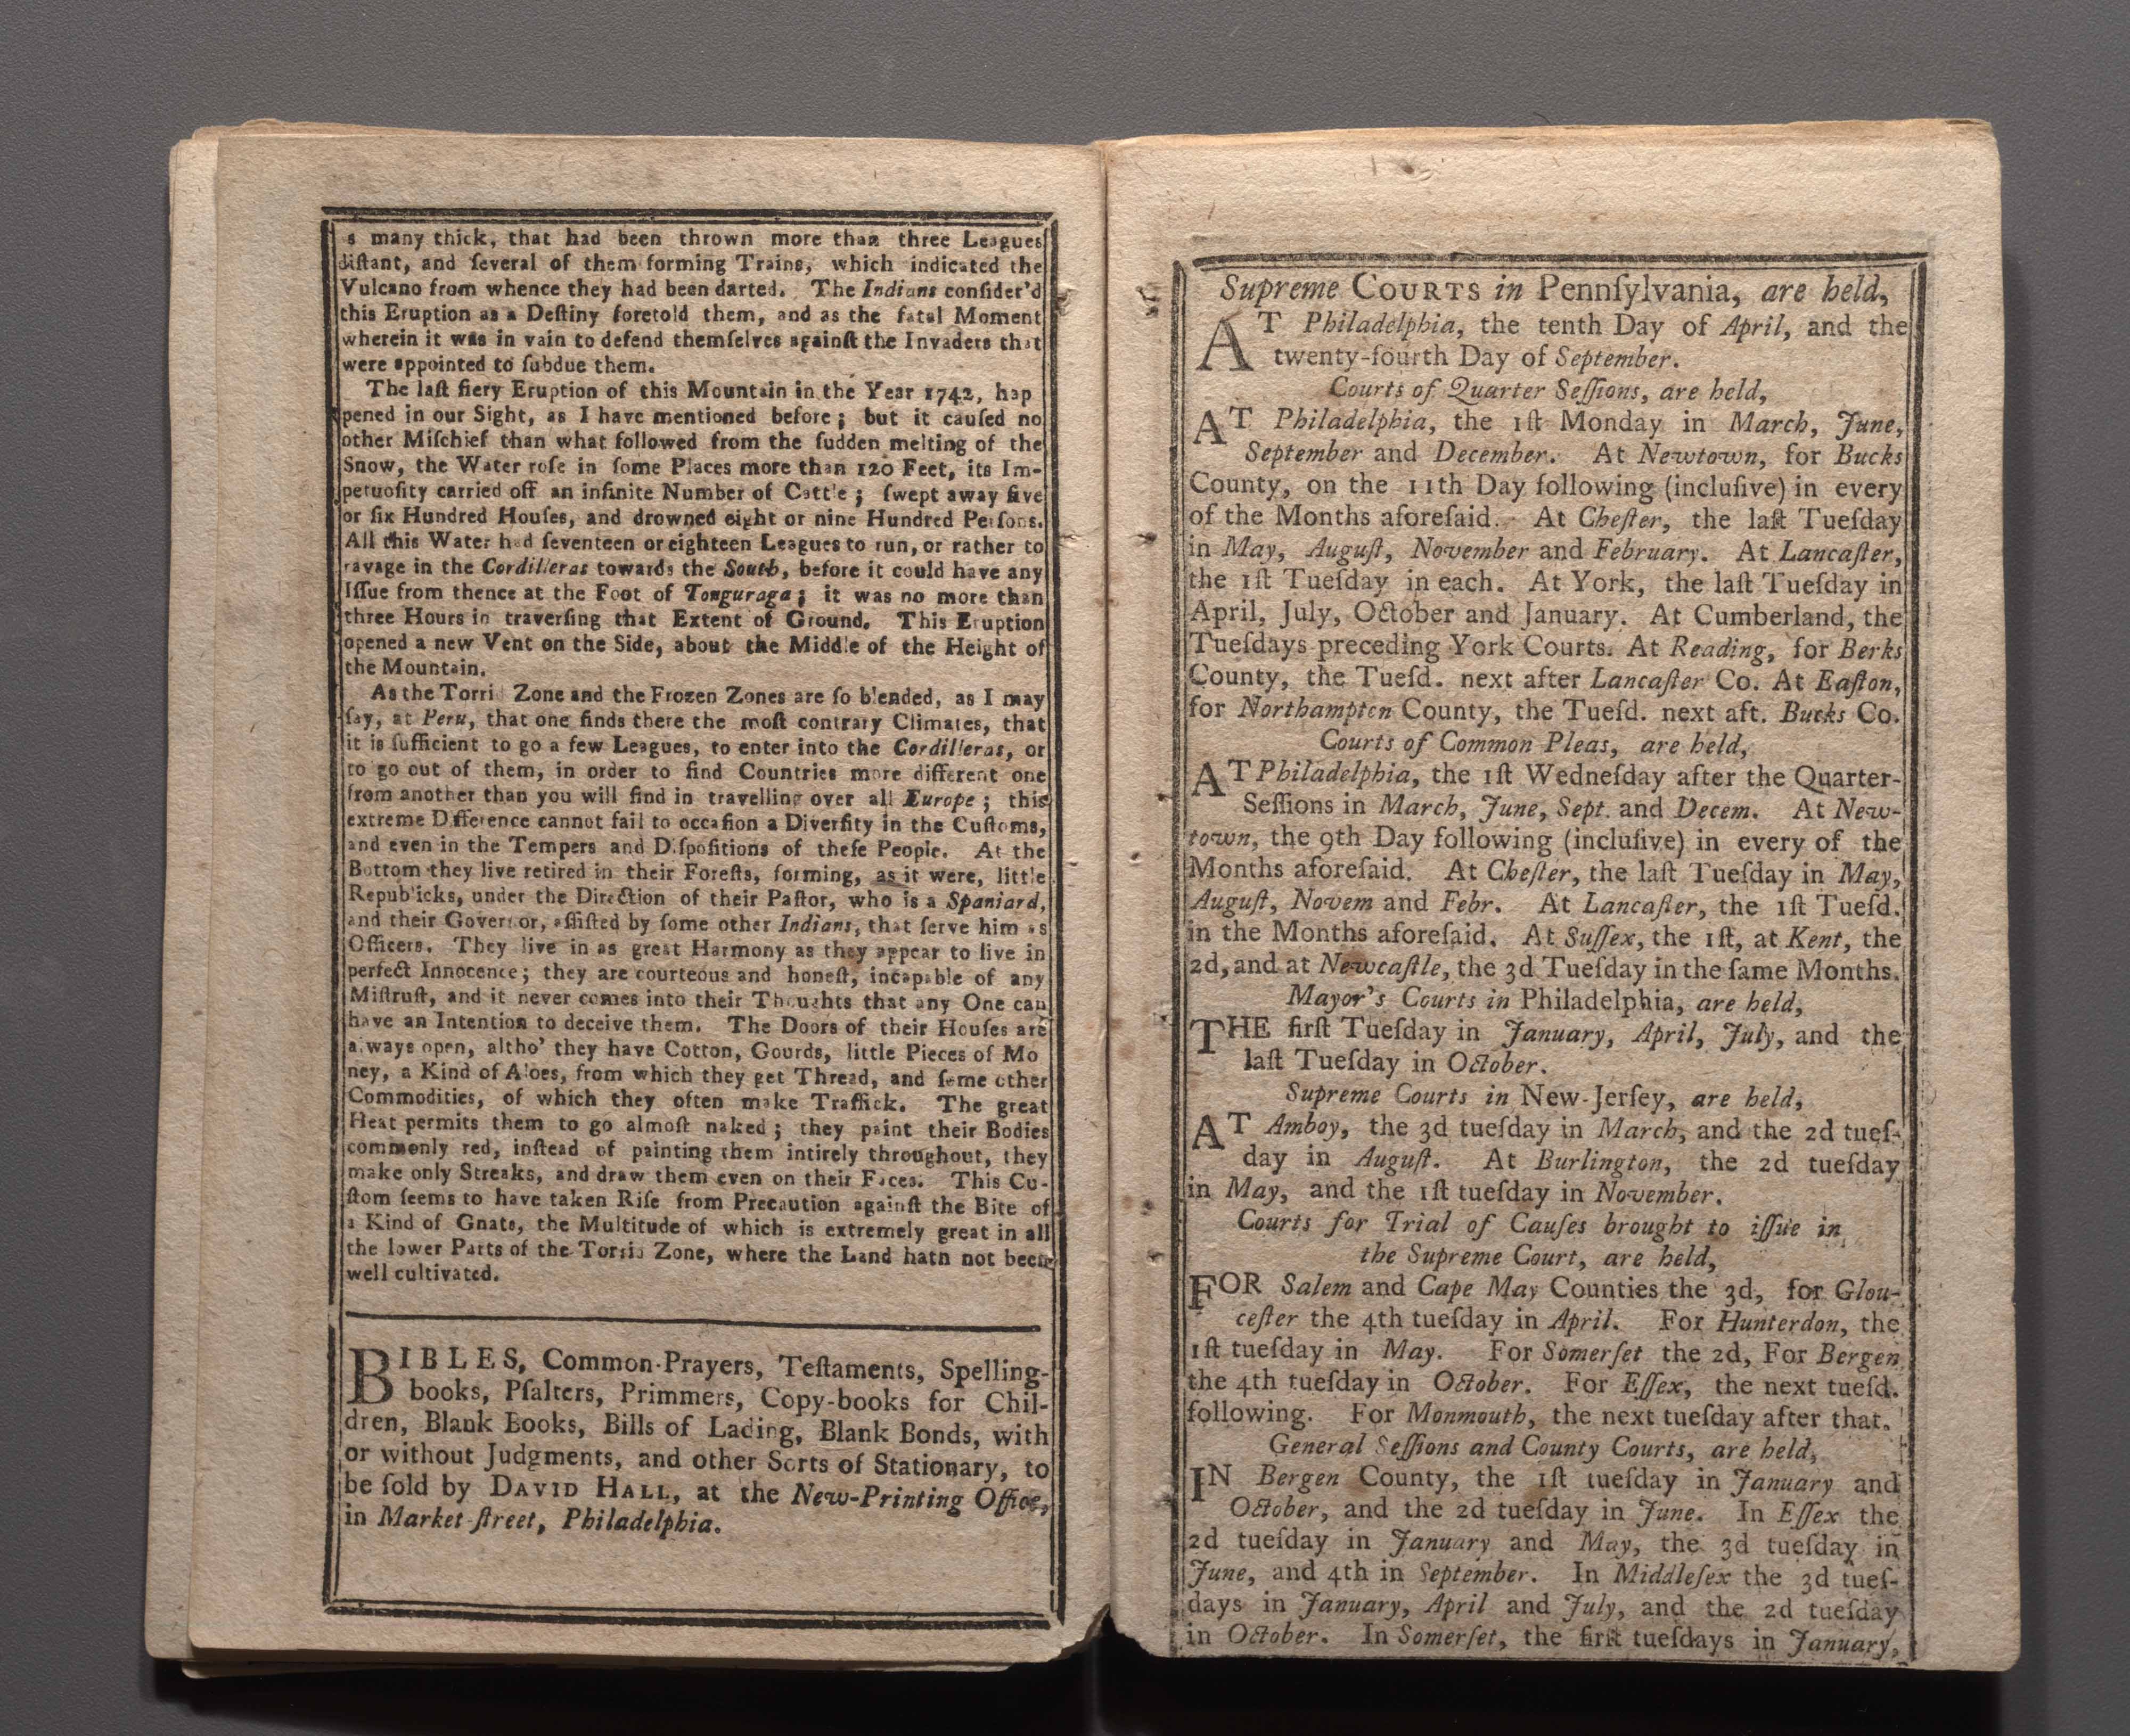 s many thick, that had been thrown more than three Leagues
diſtant, and ſeveral of them forming Trains, which indicated the
Vulcano from whence they had been darted. The Indians conſider'd
this Eruption as a Deſtiny foretold them, and as the fatal Moment
wherein it was in vain to defend themſelves againſt the Invaders that
were appointed to ſubdue them.
The laſt fiery Eruption of this Mountain in the Year 1742, hap
pened in our Sight, as I have mentioned before; but it cauſed no
other Miſchief than what followed from the ſudden melting of the
Snow, the Water roſe in ſome Places more than 120 Feet, its Im-
petuoſity carried off an infinite Number of Cattle; ſwept away five
or ſix Hundred Houſes, and drowned eight or nine Hundred Perſons.
All this Water had ſeventeen or eighteen Leagues to run, or rather to
ravage in the Cordilleras towards the South, before it could have any
Iſſue from thence at the Foot of Tonguraga; it was no more than
three Hours in traverſing that Extent of Ground. This Eruption
opened a new Vent on the Side, about the Middle of the Height of
the Mountain.
As the Torrid Zone and the Frozen Zones are ſo blended, as I may
ſay, at Peru, that one finds there the moſt contrary Climates, that
it is ſufficient to go a few Leagues, to enter into the Cordilleras, or
to go out of them, in order to find Countries more different one
from another than you will find in travelling over all Europe; this
extreme Difference cannot fail to occaſion a Diverſity in the Cuſtoms,
and even in the Tempers and Diſpoſitions of theſe People. At the
Bottom they live retired in their Foreſts, forming, as it were, little
Republicks, under the Direction of their Paſtor, who is a Spaniard,
and their Governor, aſſiſted by ſome other Indians, that ſerve him as
Officers. They live in as great Harmony as they appear to live in
perfect Innocence; they are courteous and honeſt, incapable of any
Miſtruſt, and it never comes into their Thoughts that any One can
have an Intention to deceive them. The Doors of their Houſes are
always open, altho' they have Cotton, Gourds, little Pieces of Mo
ney, a Kind of Aloes, from which they get Thread, and ſome other
Commodities, of which they often make Traffick. The great
Heat permits them to go almoſt naked; they paint their Bodies
commonly red, inſtead of painting them intirely throughout, they
make only Streaks, and draw them even on their Faces. This Cu-
ſtom ſeems to have taken Riſe from Precaution againſt the Bite of
a Kind of Gnats, the Multitude of which is extremely great in all
the lower Parts of the Torrid Zone, where the Land hath not been
well cultivated.
BIBLES, Common-Prayers, Teſtaments, Spelling-
books, Pſalters, Primmers, Copy-books for Chil-
dren, Blank Books, Bills of Lading, Blank Bonds, with
or without Judgments, and other Sorts of Stationary, to
be ſold by DAVID HALL, at the New-Printing Office,
in Market-ſtreet, Philadelphia.
Supreme COURTS in Pennſylvania, are held,
AT Philadelphia, the tenth Day of April, and the
twenty-fourth Day of September.
Courts of Quarter Seſſions, are held,
AT Philadelphia, the 1ſt Monday in March, June,
September and December. At Newtown, for Bucks
County, on the 11th Day following (incluſive) in every
of the Months aforeſaid. At Cheſter, the laſt Tueſday
in May, Auguſt, November and February. At Lancaſter,
the 1ſt Tueſday in each. At York, the laſt Tueſday in
April, July, October and January. At Cumberland, the
Tueſdays preceding York Courts. At Reading, for Berks
County, the Tueſd. next after Lancaſter Co. At Eaſton,
for Northampton County, the Tueſd. next aft. Bucks Co.
Courts of Common Pleas, are held,
AT Philadelphia, the 1ſt Wedneſday after the Quarter-
Seſſions in March, June, Sept. and Decem. At New-
town, the 9th Day following (incluſive) in every of the
Months aforeſaid. At Cheſter, the laſt Tueſday in May,
Auguſt, Novem and Febr. At Lancaſter, the 1ſt Tueſd.
in the Months aforeſaid. At Suſſex, the 1ſt, at Kent, the
2d, and at Newcaſtle, the 3d Tueſday in the ſame Months.
Mayor's Courts in Philadelphia, are held,
THE firſt Tueſday in January, April, July, and the
laſt Tueſday in October.
Supreme Courts in New-Jerſey, are held,
AT Amboy, the 3d tueſday in March, and the 2d tueſ-
day in Auguſt. At Burlington, the 2d tueſday
in May, and the 1ſt tueſday in November.
Courts for Trial of Cauſes brought to iſſue in
the Supreme Court, are held,
FOR Salem and Cape May Counties the 3d, for Glou-
ceſter the 4th tueſday in April. For Hunterdon, the
1ſt tueſday in May. For Somerſet the 2d, For Bergen
the 4th tueſday in October. For Eſſex, the next tueſd.
following. For Monmouth, the next tueſday after that.
General Seſſions and County Courts, are held,
IN Bergen County, the 1ſt tueſday in January and
October, and the 2d tueſday in June. In Eſſex the
2d tueſday in January and May, the 3d tueſday in
June, and 4th in September. In Middleſex the 3d tueſ-
days in January, April and July, and the 2d tueſday
in October. In Somerſet, the firſt tueſdays in January,